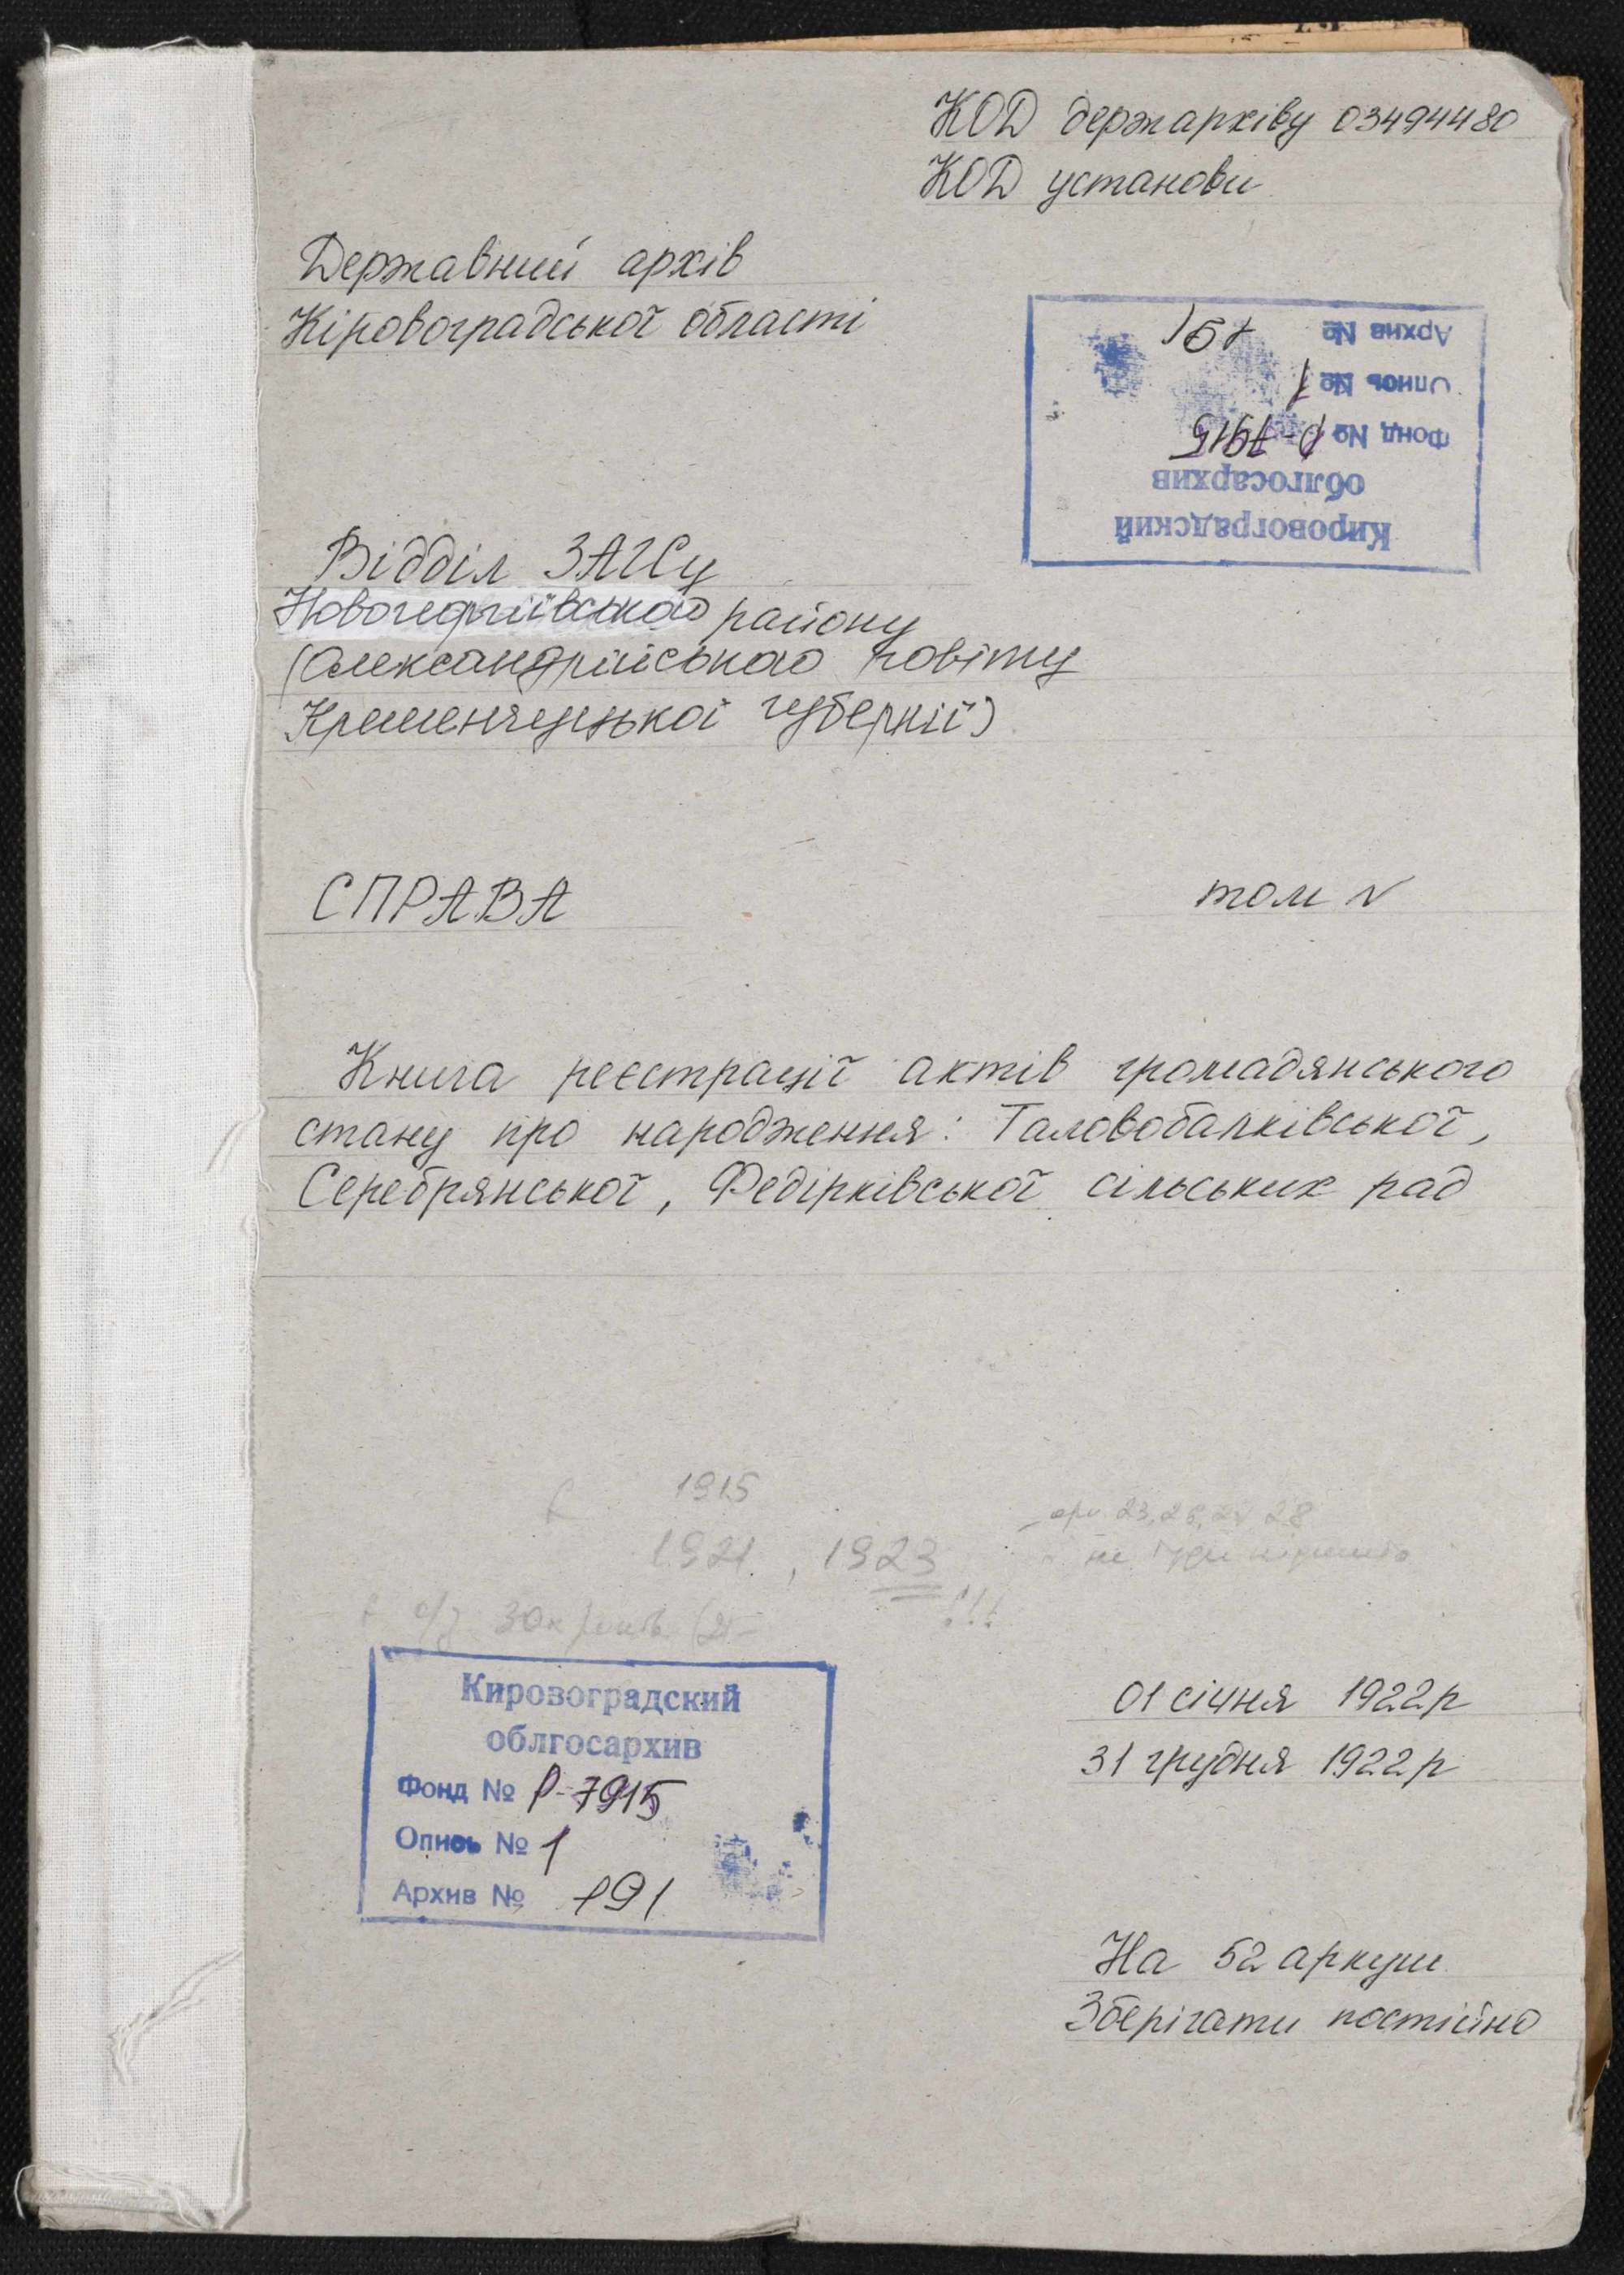 КОД держархіву 03494480
КОД установи
Державний архів
Кіровоградської області
Кировоградский
облгосархив
Фонд № Р-7915
Опись № 1
Архив № 191
Відділ ЗАГСу
Новогеоргіївського району
(Олександрійського повіту
Кременчуцької губернії)
СПРАВА
том №
Книга реєстрації актів громадянського
стану про народження: Таловобалківської,
Серебрянської, Федірківської сільських рад
1915
1921, 1923
арк. 23, 26, 28
не
!!!
01 січня 1922р
31 грудня 1922р
Кировоградский
облгосархив
Фонд № Р-7915
Опись № 1
Архив № 191
На 52 аркуш
Зберігати постійно